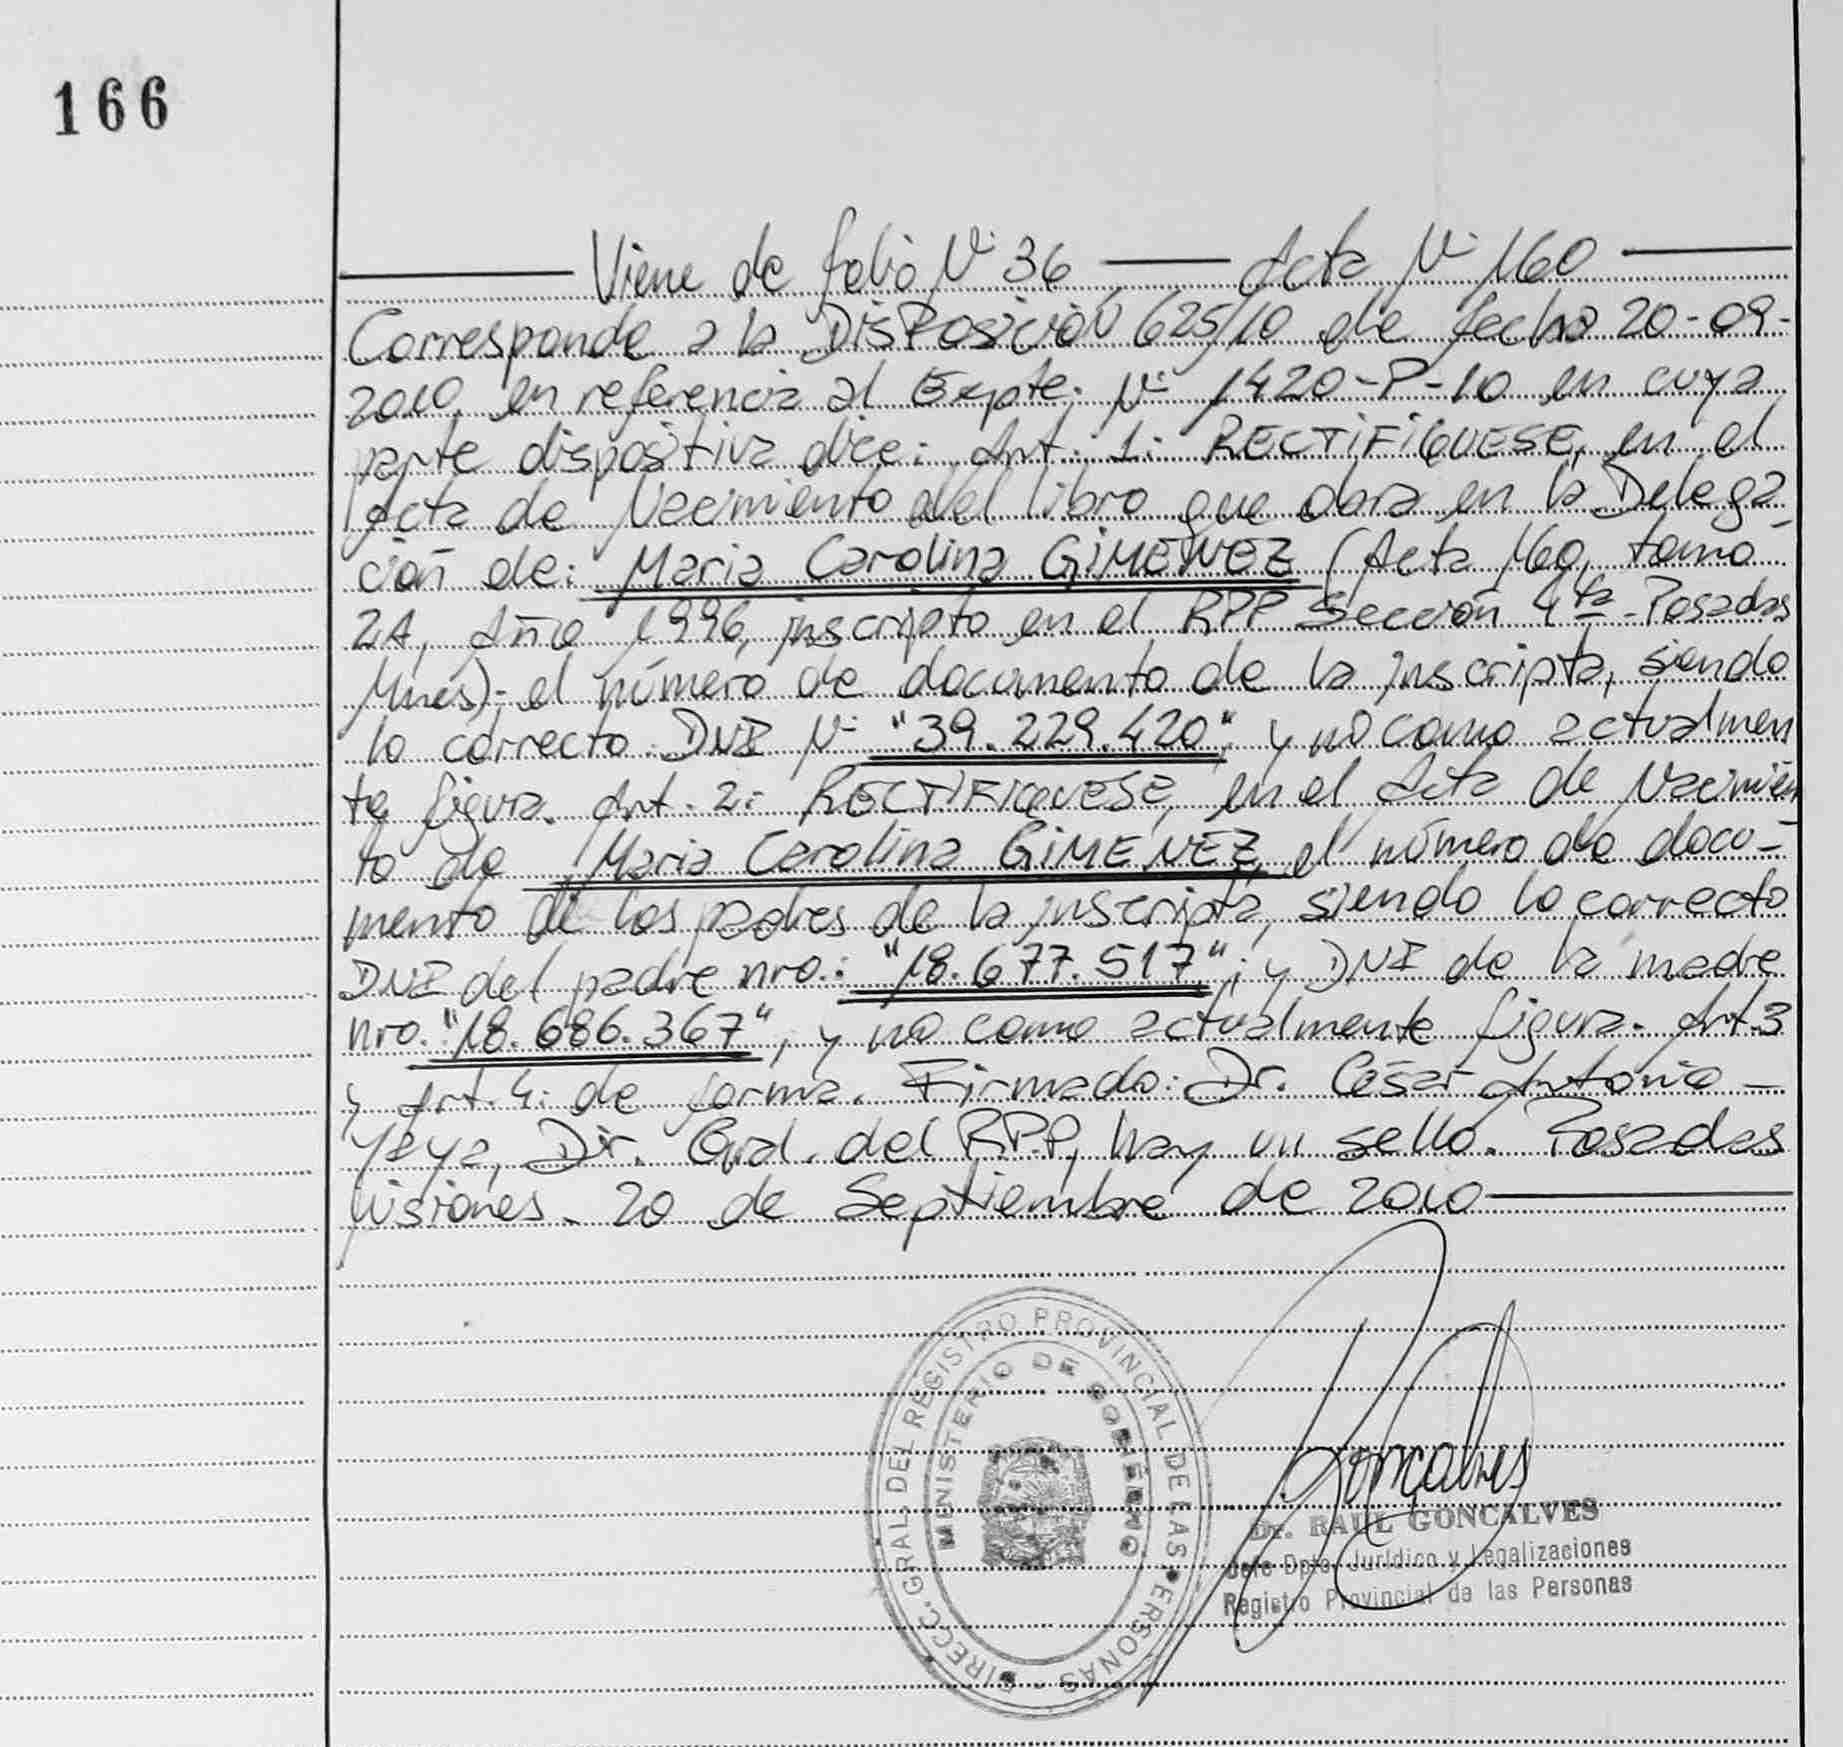 166
Viene de folio Nº 36 — Acta Nº 160
Corresponde a la DisPosición 625/10 de fecha 20-09-
2010, en referencia al Expte. Nº 1420-P-10 en cuya
parte dispositiva dice: Art. 1: RECTIFIQUESE, en el
Acta de Nacimiento del libro que obra en la Delega-
ción de: Maria Carolina GIMENEZ (Acta 160, tomo
2A, Año 1996, inscripto en el RPP Sección 4ta - Posadas
Mnes); el número de documento de la inscripta, siendo
lo correcto DNI Nº "39.229.420", y no como actualmen
te figura. Art. 2: RECTIFIQUESE, en el Acta de Nacimien
to de Maria Carolina GIMENEZ, el número de docu-
mento de los padres de la inscripta, siendo lo correcto
DNI del padre nro.: "18.677.517"; y DNI de la madre
nro. "18.686.367", y no como actualmente figura. Art.3
y Art. 4: de forma. Firmado: Dr. César Antonio —
Yaya, Dir. Gral. del RPP, hay un sello. Posadas
Misiones. 20 de Septiembre de 2010
DIRECC. GRAL. DEL REGISTRO PROVINCIAL DE LAS PERSONAS -
MINISTERIO DE GOBIERNO
Goncalves
Dr. RAUL GONCALVES
Jefe Dpto. Jurídico y Legalizaciones
Registro Provincial de las Personas